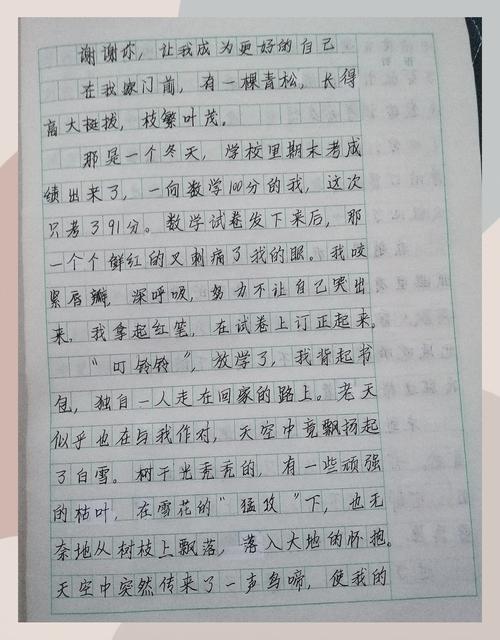 谢谢你，让我成为更好的自己
在我家门前，有一棵青松，长得
高大挺拔，枝繁叶茂。
那是一个冬天，学校里期末考成
绩出来了，一向数学100分的我，这次
只考了91分。数学试卷发下来后，那
一个个鲜红的叉刺痛了我的眼。我咬
紧唇瓣，深呼吸，努力不让自己哭出
来，我拿起红笔，在试卷上订正起来。
“叮铃铃”，放学了，我背起书
包，独自一人走在回家的路上。老天
似乎也在与我作对，天空中竟飘扬起
了白雪。树干光秃秃的，有一些顽强
的枯叶，在雪花的“猛攻”下，也无
奈地从树枝上飘落，落入大地的怀抱。
天空中突然传来了一声鸟啼，使我的